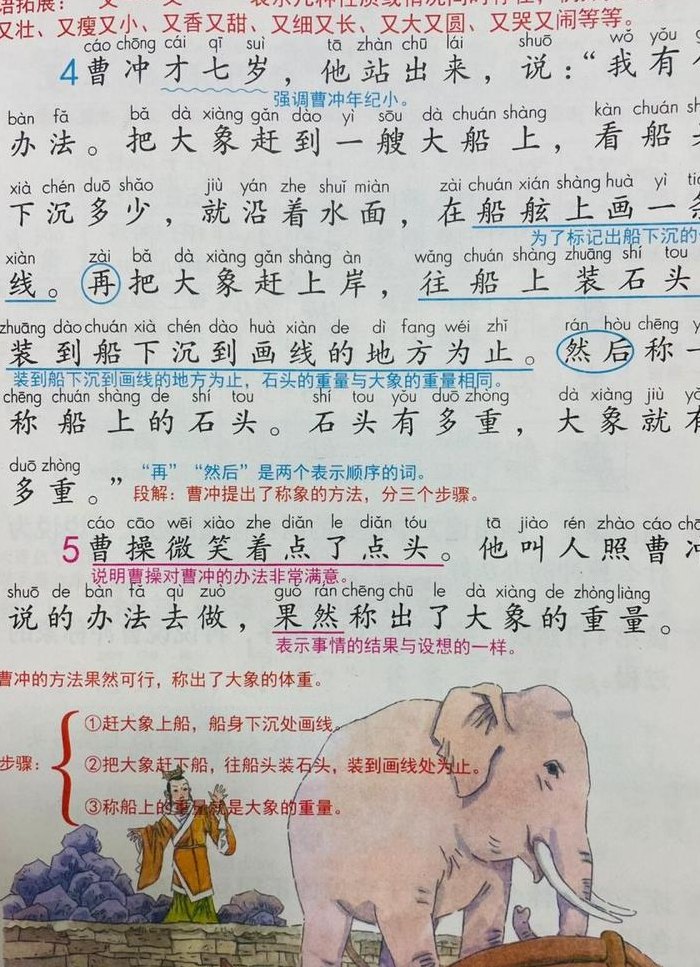 语拓展：“又……又……”表示几种性质或情况同时存在，
又壮、又瘦又小、又香又甜、又细又长、又大又圆、又哭又闹等等。
cáo chōng cái qī suì tā zhàn chū lái shuō wǒ yǒu
4 曹冲才七岁，他站出来，说：“我有
强调曹冲年纪小。
bàn fǎ bǎ dà xiàng gǎn dào yì sōu dà chuán shàng kàn chuán
办法。把大象赶到一艘大船上，看船
xià chén duō shǎo jiù yán zhe shuǐ miàn zài chuán xián shàng huà yì
下沉多少，就沿着水面，在船舷上画一条
为了标记出船下沉的
xiàn zài bǎ dà xiàng gǎn shàng àn wǎng chuán shàng zhuāng shí tou
线。再把大象赶上岸，往船上装石头
zhuāng dào chuán xià chén dào huà xiàn de dì fang wéi zhǐ rán hòu chēng
装到船下沉到画线的地方为止。然后称一
装到船下沉到画线的地方为止，石头的重量与大象的重量相同。
chēng chuán shàng de shí tou shí tou yǒu duō zhòng dà xiàng jiù
称船上的石头。石头有多重，大象就有
duō zhòng
多重。”
“再”“然后”是两个表示顺序的词。
段解：曹冲提出了称象的方法，分三个步骤。
cáo cāo wēi xiào zhe diǎn le diǎn tóu tā jiào rén zhào cáo
5 曹操微笑着点了点头。他叫人照曹冲
说明曹操对曹冲的办法非常满意。
shuō de bàn fǎ qù zuò guǒ rán chēng chū le dà xiàng de zhòng liàng
说的办法去做，果然称出了大象的重量。
表示事情的结果与设想的一样。
曹冲的方法果然可行，称出了大象的体重。
步骤：
①赶大象上船，船身下沉处画线。
②把大象赶下船，往船头装石头，装到画线处为止。
③称船上的重量就是大象的重量。